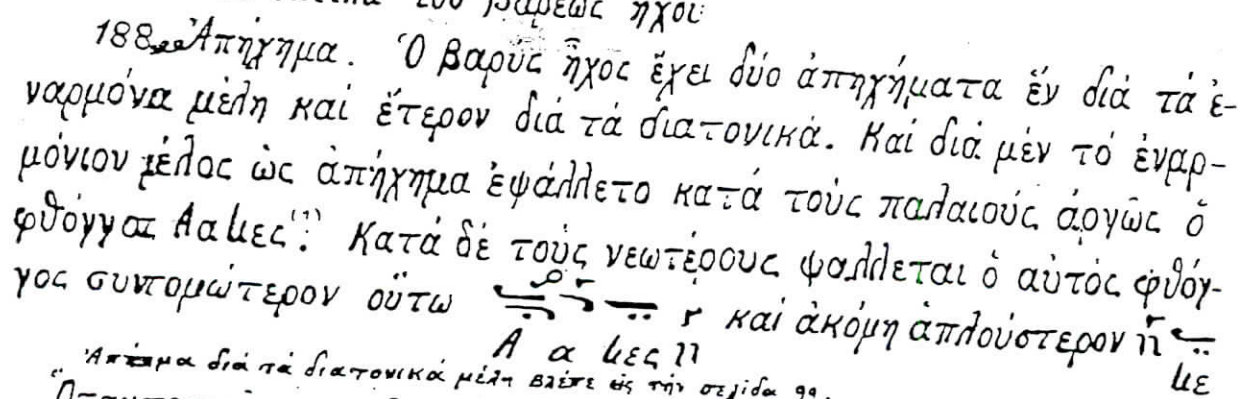 τοῦ βαρέως ἤχου
188 Ἀπήχημα. Ὁ βαρύς ἦχος ἔχει δύο ἀπηχήματα ἕν διά τά ἐ-
ναρμόνια μέλη καί ἕτερον διά τά διατονικά. Καί διά μέν τό ἐναρ-
μόνιον μέλος ὡς ἀπήχημα ἐψάλλετο κατά τούς παλαιούς ἀργῶς ὁ
φθόγγος Αανες(1). Κατά δέ τούς νεωτέρους ψάλλεται ὁ αὐτός φθόγ-
γος συντομώτερον οὕτω καί ἀκόμη ἁπλούστερον
Α α νες
νε
διά τά διατονικά μέλη βλέπε εἰς τήν σελίδα 99.